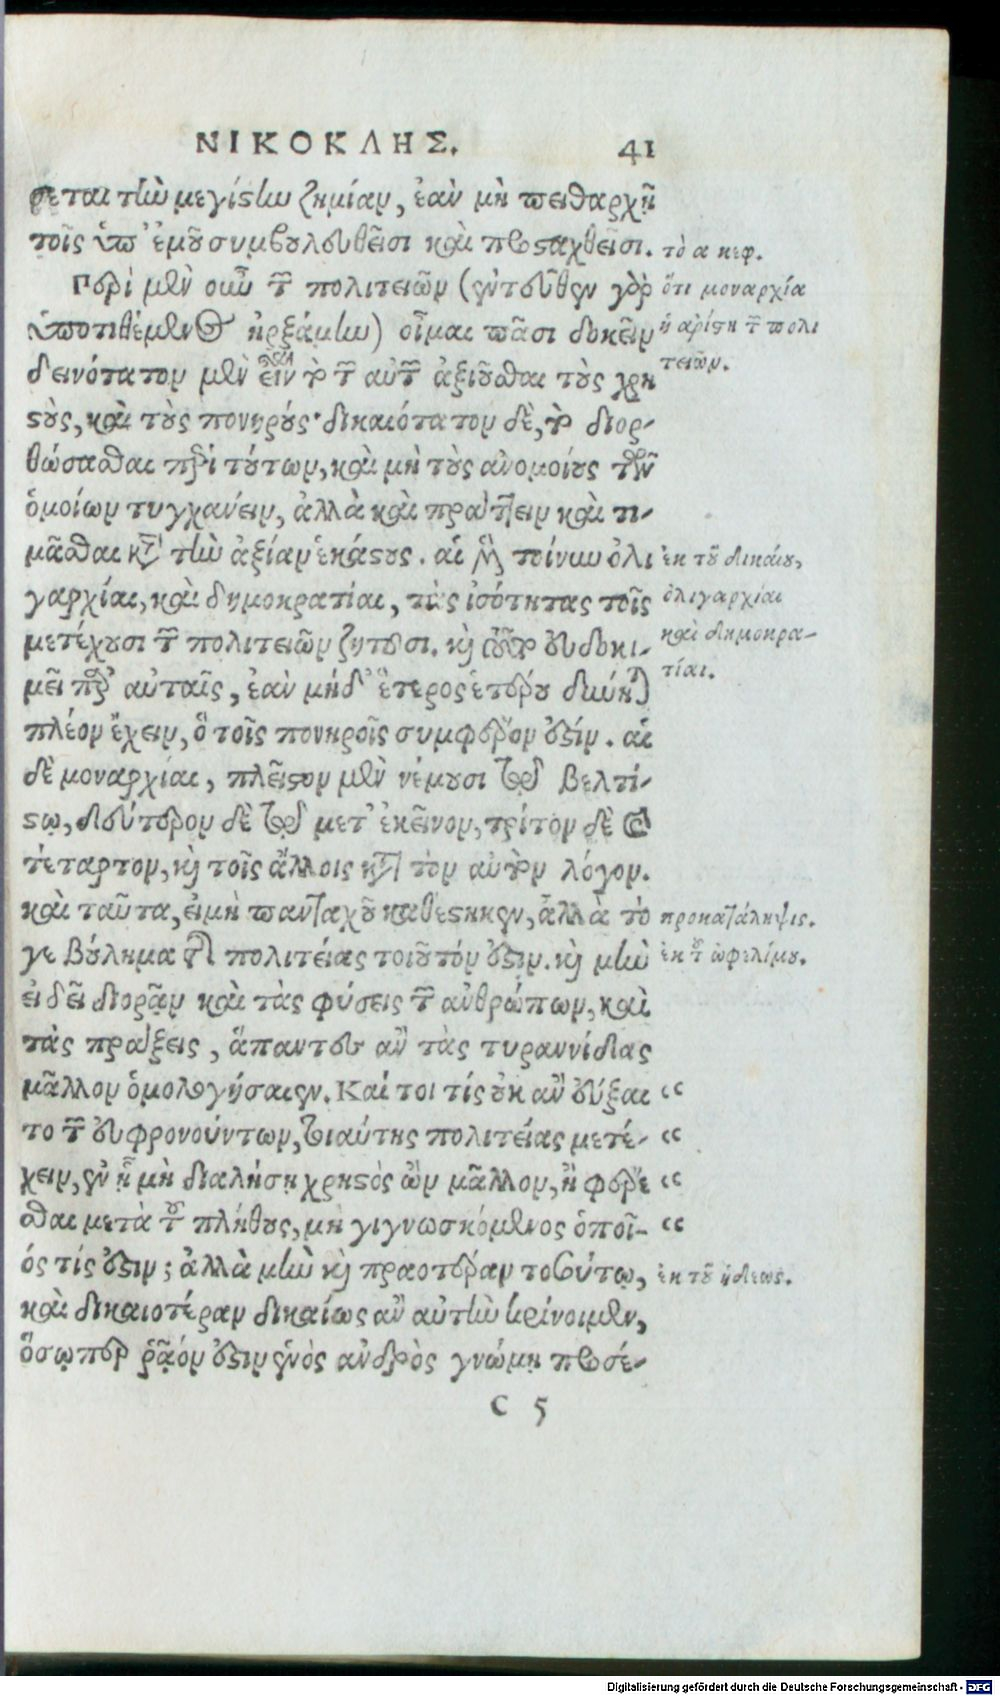 ΝΙΚΟΚΛΗΣ. 41
σεται τὴν μεγίστην ζημίαν, ἐὰν μὴ πειθαρχῇ
τοῖς ὑπ' ἐμοῦ συμβουλευθεῖσι καὶ προσταχθεῖσι. τὸ α κεφ.
Περὶ μὲν οὖν τῶν πολιτειῶν (ἐντεῦθεν γὰρ ὅτι μοναρχία
ὑποτιθέμενος ἠρξάμην) οἶμαι πᾶσι δοκεῖν ἡ ἀρίστη τῶν πολι
δεινότατον μὲν εἶναι τὸ τῶν αὐτῶν ἀξιοῦσθαι τοὺς χρη τειῶν.
στοὺς, καὶ τοὺς πονηρούς· δικαιότατον δὲ, τὸ διορ-
θώσασθαι περὶ τούτων, καὶ μὴ τοὺς ἀνομοίους τῶν
ὁμοίων τυγχάνειν, ἀλλὰ καὶ πράττειν καὶ τι-
μᾶσθαι κατὰ τὴν ἀξίαν ἑκάστους. αἱ μὲν τοίνυν ὀλι ἐκ τοῦ δικαίου,
γαρχίαι, καὶ δημοκρατίαι, τὰς ἰσότητας τοῖς ὀλιγαρχίαι
μετέχουσι τῶν πολιτειῶν ζητοῦσι. καὶ τοῦτο εὐδοκι- καὶ δημοκρα-
μεῖ παρ' αὐταῖς, ἐὰν μηδ' ἕτερος ἑτέρου δύνηται τίαι.
πλέον ἔχειν, ὃ τοῖς πονηροῖς συμφέρον ἐστίν. αἱ
δὲ μοναρχίαι, πλεῖστον μὲν νέμουσι τῷ βελτί-
στῳ, δεύτερον δὲ τῷ μετ' ἐκεῖνον, τρίτον δὲ καὶ
τέταρτον, καὶ τοῖς ἄλλοις κατὰ τὸν αὐτὸν λόγον.
καὶ ταῦτα, εἰ μὴ πανταχοῦ καθέστηκεν, ἀλλὰ τό προκατάληψις.
γε βούλημα τῆς πολιτείας τοιοῦτόν ἐστιν. καὶ μὴν ἐκ τοῦ ὠφελίμου.
εἰ δεῖ διορᾷν καὶ τὰς φύσεις τῶν ἀνθρώπων, καὶ
τὰς πράξεις, ἅπαντες ἂν τὰς τυραννίδας
μᾶλλον ὁμολογήσαιεν. Καί τοι τίς οὐκ ἂν εὔξαι “
το τῶν εὐφρονούντων, τοιαύτης πολιτείας μετέ- “
χειν, ἐν ᾗ μὴ διαλήσῃ χρηστὸς ὢν μᾶλλον, ἢ φέρε “
σθαι μετὰ τοῦ πλήθους, μὴ γιγνωσκόμενος ὁποῖ- “
ός τίς ἐστιν; ἀλλὰ μὴν καὶ πραοτέραν τοσούτῳ, ἐκ τοῦ ἡδέως.
καὶ δικαιοτέραν δικαίως ἂν αὐτὴν κρίνοιμεν,
ὅσῳπερ ῥᾷόν ἐστιν ἑνὸς ἀνδρὸς γνώμῃ προσέ-
C 5
Digitalisierung gefördert durch die Deutsche Forschungsgemeinschaft - DFG